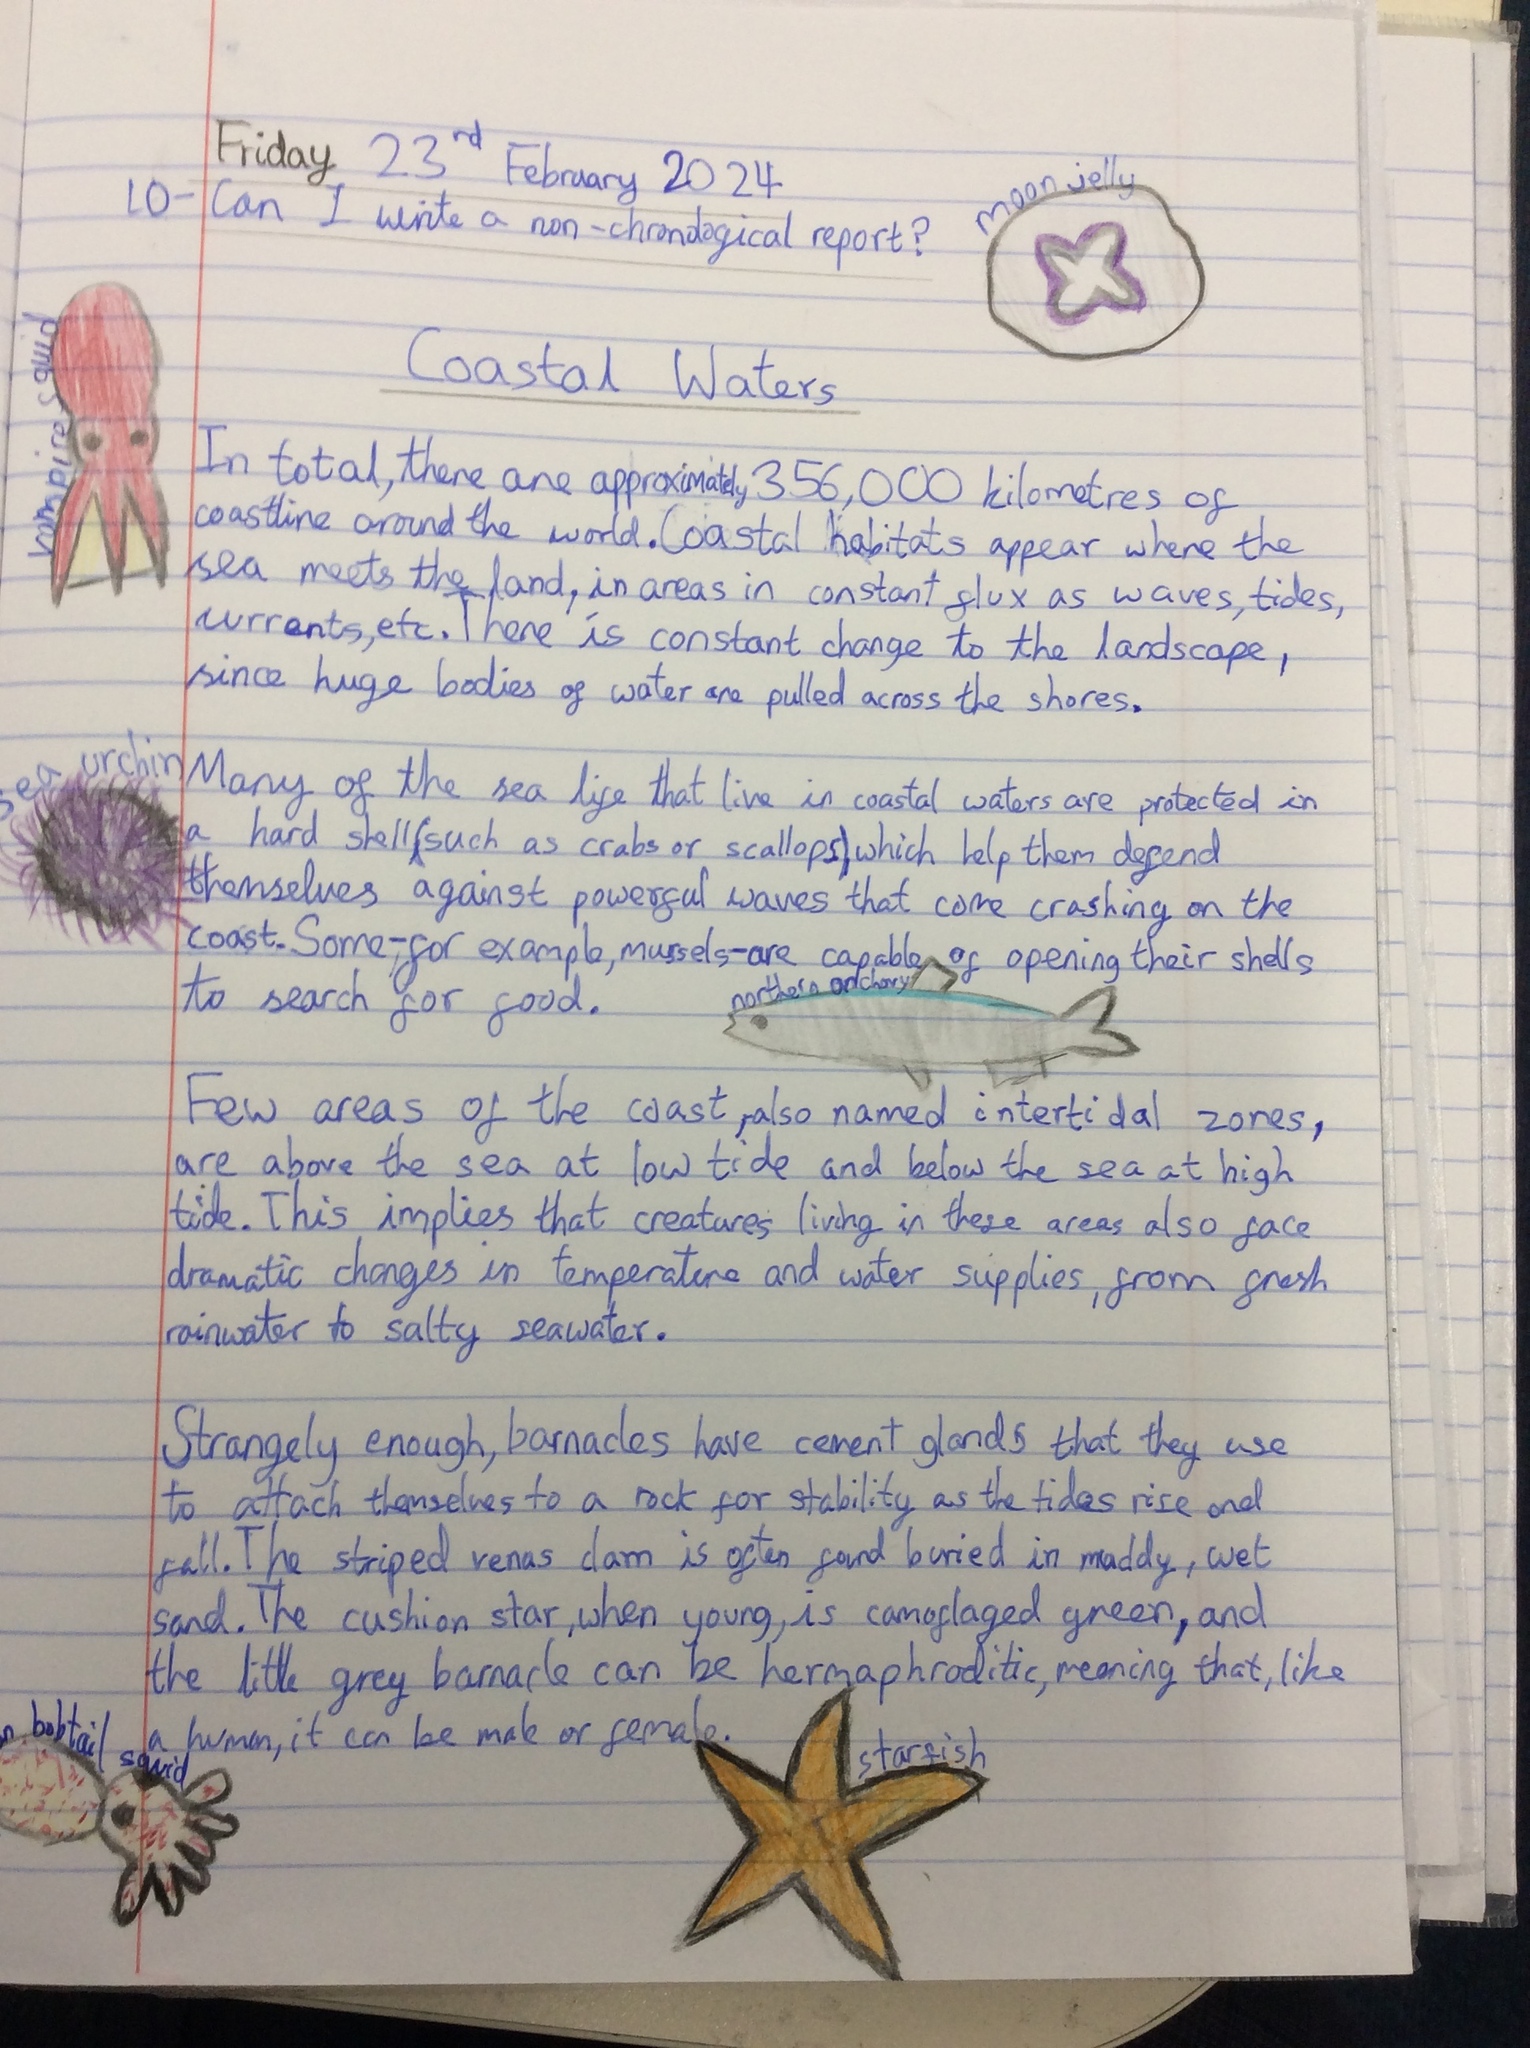 Friday 23rd February 2024
LO- Can I write a non-chronological report?
moon jelly
Coastal Waters
vampire squid
In total, there are approximately 356,000 kilometres of
coastline around the world. Coastal habitats appear where the
sea meets the land, in areas in constant flux as waves, tides,
currents, etc. There is constant change to the landscape,
since huge bodies of water are pulled across the shores.
sea urchin
Many of the sea life that live in coastal waters are protected in
a hard shell (such as crabs or scallops) which help them defend
themselves against powerful waves that come crashing on the
coast. Some-, for example, mussels-are capable of opening their shells
to search for food.
northern anchovy
Few areas of the coast, also named intertidal zones,
are above the sea at low tide and below the sea at high
tide. This implies that creatures living in these areas also face
dramatic changes in temperature and water supplies, from fresh
rainwater to salty seawater.
Strangely enough, barnacles have cement glands that they use
to attach themselves to a rock for stability as the tides rise and
fall. The striped venus clam is often found buried in muddy, wet
sand. The cushion star, when young, is camoflaged green, and
the little grey barnacle can be hermaphroditic, meaning that, like
a human, it can be male or female.
bobtail squid
starfish